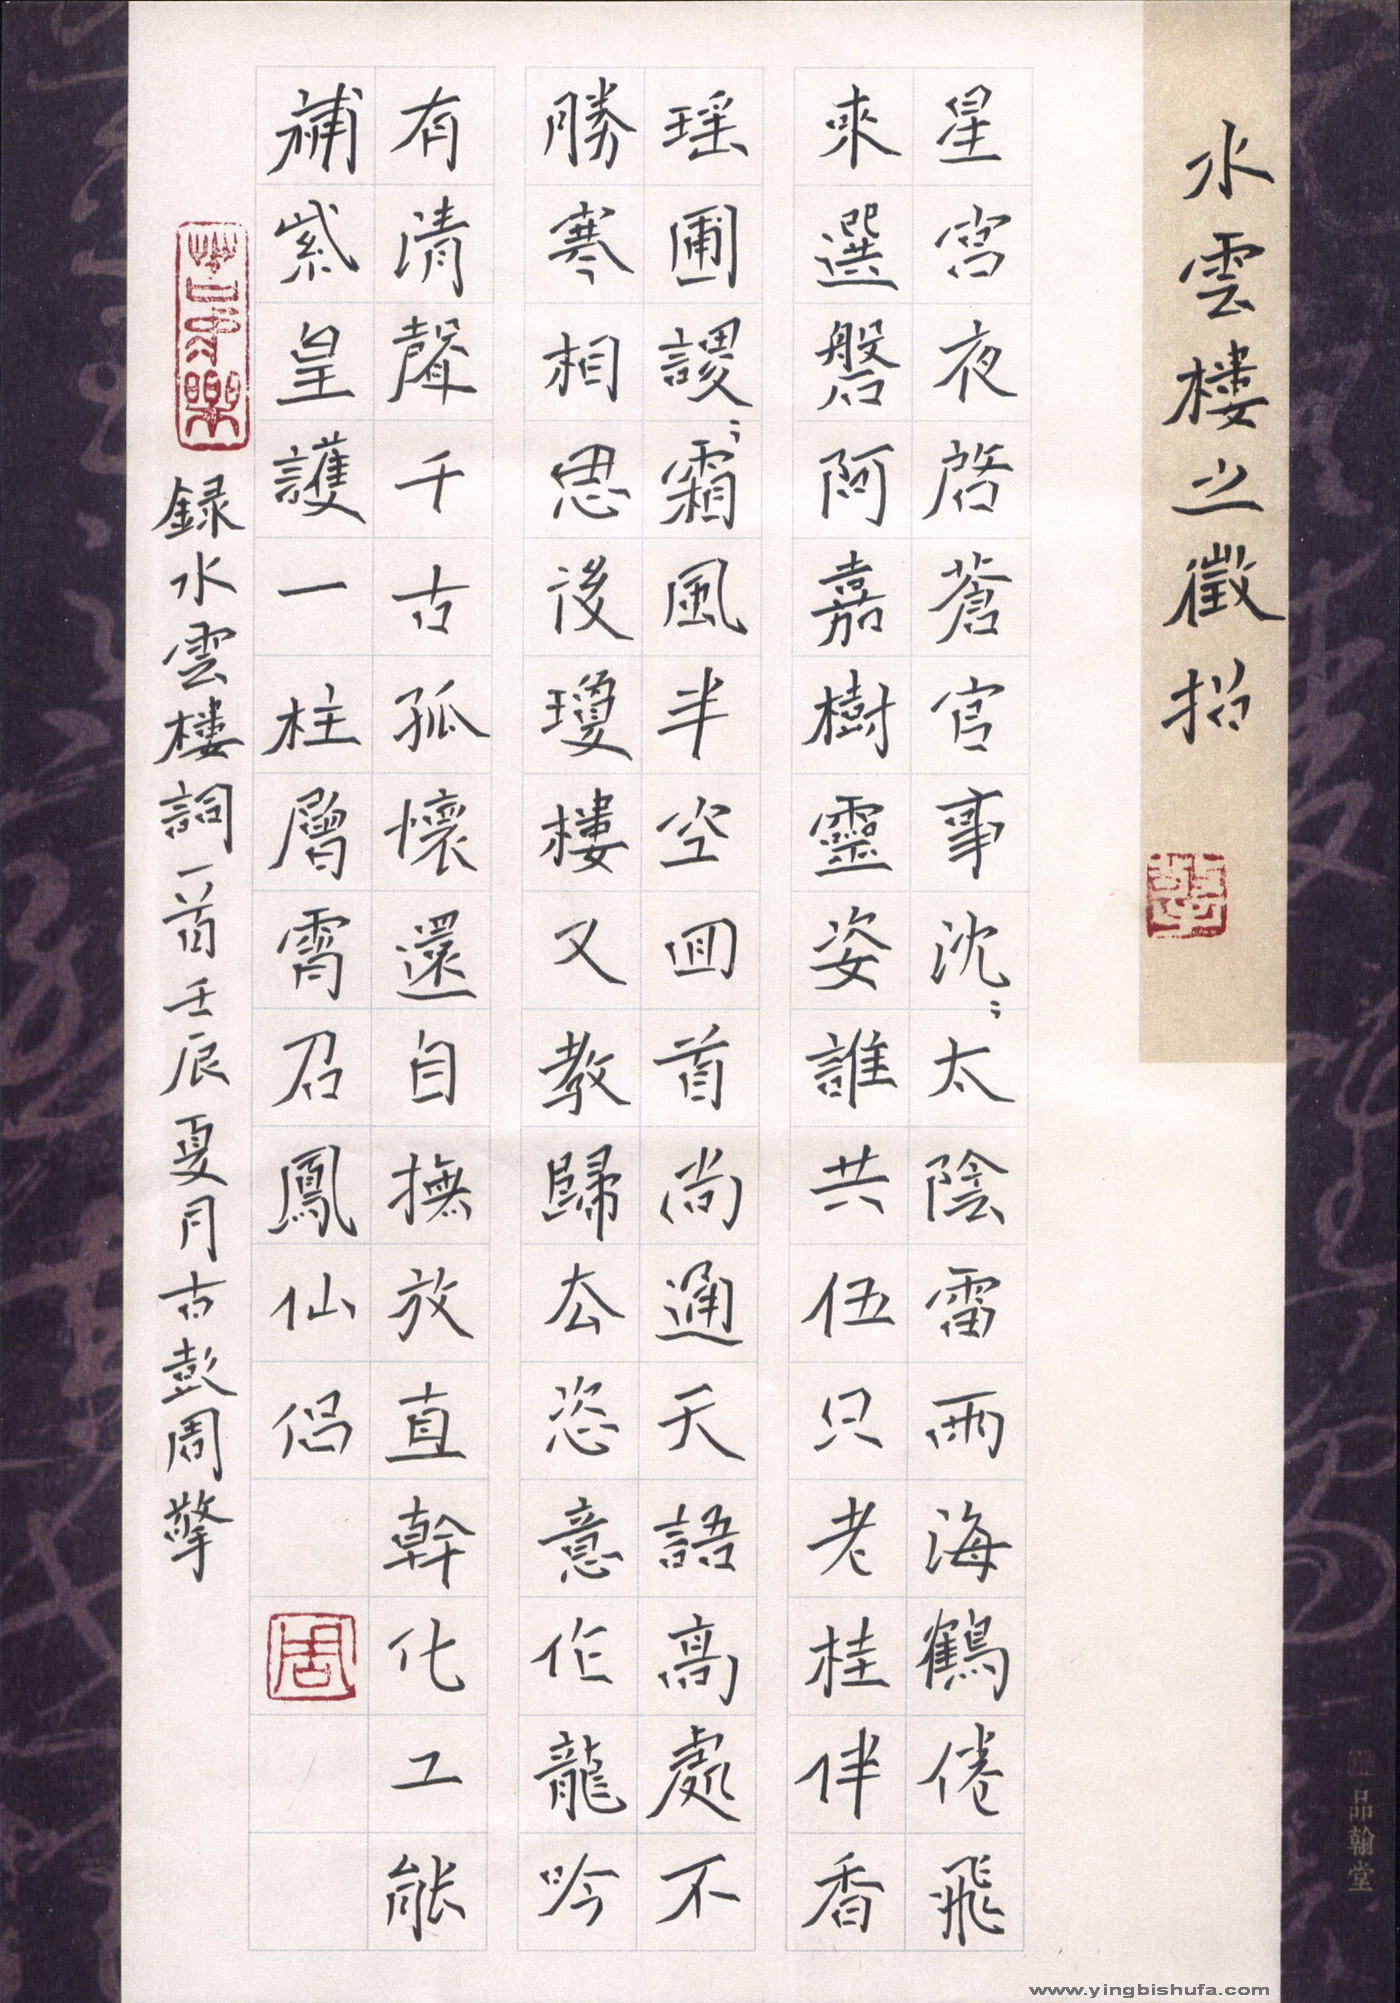 水雲樓之徵招
星宮夜啓蒼官事沈〻太陰雷雨海鶴倦飛
來選磐阿嘉樹靈姿誰共伍只老桂伴香
瑶圃謖〻霜風半空回首尚通天語高處不
勝寒相思後瓊樓又教歸去恣意作龍吟
有清聲千古孤懷還自撫放直幹化工能
補紫皇護一柱層霄召鳳仙侶
周
録水雲樓詞一首壬辰夏月古彭周擎
品翰堂
www.yingbishufa.com